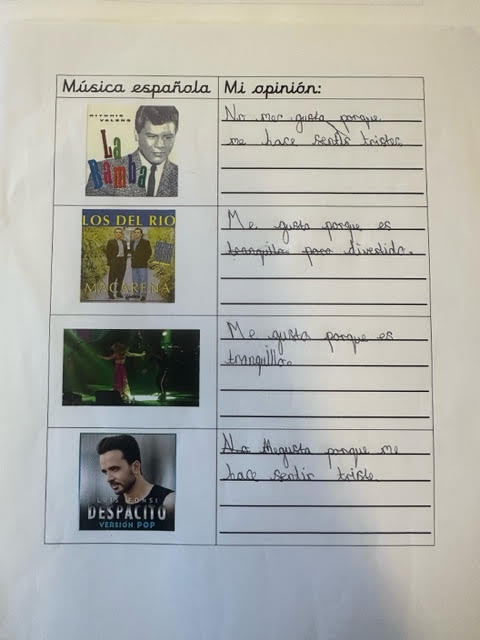 Música española
Mi opinión:
RITCHIE
VALENS
La
Bamba
No me gusta porque
me hace sentir triste.
LOS DEL RIO
MACARENA
Me gusta porque es
tranquila para divertido.
Me gusta porque es
tranquillo.
LUIS FONSI
DESPACITO
VERSIÓN POP
No Megusta porque me
hace sentir triste